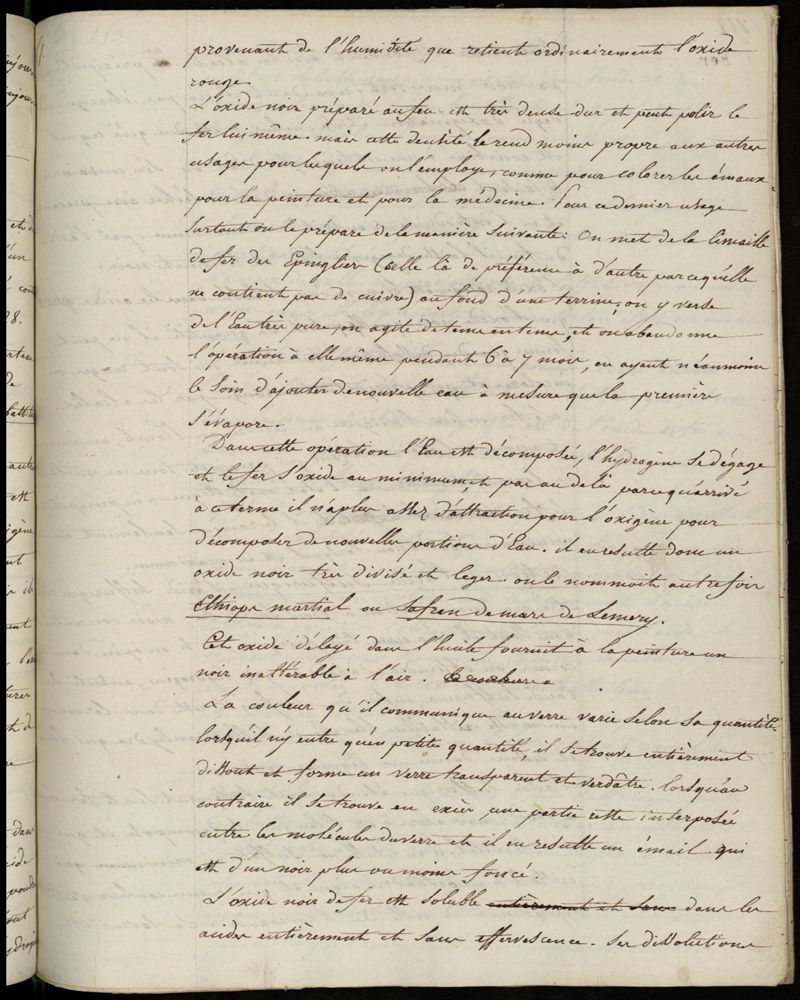 provenant de l'humidité que retient ordinairement l'oxide
rouge
L'oxide noir préparé au feu est très dense dur et peut polir le
fer lui même. mais cette densité le rend moins propre aux autres
usages pour lesquels on l'employe, comme pour colorer les émaux
pour la peinture et pour la médecine. Pour ce dernier usage
surtout on le prépare de la manière suivante: On met de la limaille
de fer des Epingliers (celle là de préférence à d'autre parcequ'elle
ne contient pas de cuivre) au fond d'une terrine, on y verse
de l'Eau très pure, on agite de tems en tems, et on abandonne
l'opération à elle même pendant 6 à 7 mois, en ayant néanmoins
le soin d'ajouter de nouvelle eau à mesure que la première
s'évapore.
Dans cette opération l'Eau est décomposée, l'hydrogène se dégage
et le fer s'oxide au minimum, et pas au delà parcequ'arrivé
à ce terme il n'a plus assez d'attraction pour l'oxigène pour
décomposer de nouvelles portions d'Eau. il en resulte donc un
oxide noir très divisé et leger. on le nommoit autrefois
Ethiops martial ou Safran de mars de Lemery.
Cet oxide délayé dans l'huile fournit à la peinture un
noir inattérable à l'air. la couleur
La couleur qu'il communique au verre varie selon sa quantité.
lorsqu'il n'y entre qu'en petite quantité, il se trouve entièrement
dissout et forme un verre transparent et verdâtre. lorsqu'au
contraire il se trouve en excès, une partie reste interposée
entre les molécules du verre et il en resulte un émail qui
est d'un noir plus ou moins foncé.
L'oxide noir de fer est soluble entièrement et sans dans les
acides entièrement et sans effervescence. Ses dissolutions